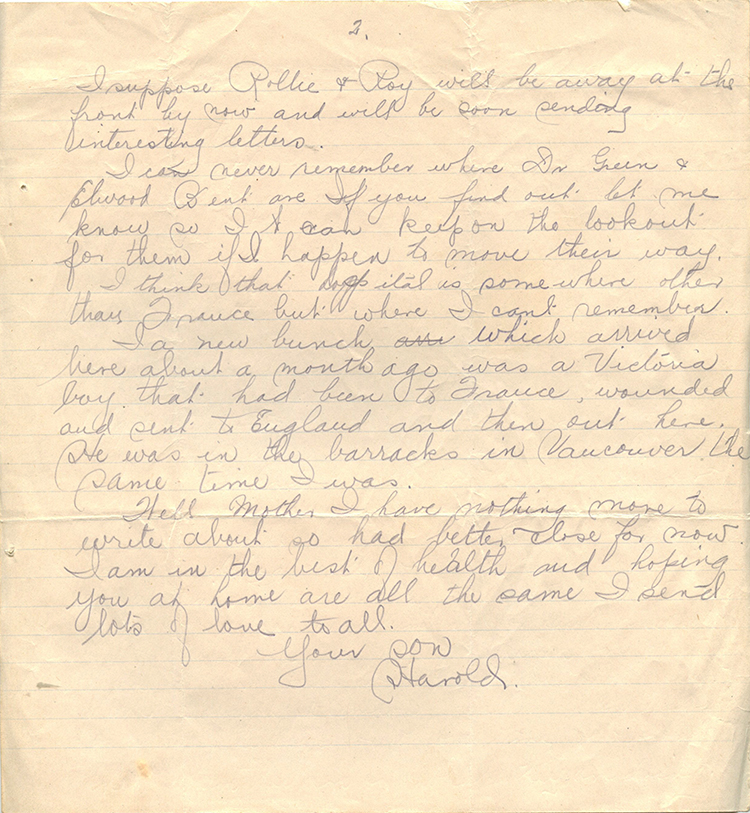 2.
I suppose Rollie & Roy will be away at the
front by now and will be soon sending
interesting letters.
I can never remember where Dr Green &
Elwood Bent are If you find out let me
know so I can keep on the lookout
for them if I happen to move their way.
I think that hospital is somewhere other
than France but where I cant remember.
I a new bunch which arrived
here about a month ago was a Victoria
boy that had been to France, wounded
and sent to England and then out here.
He was in the barracks in Vancouver the
same time I was.
Well Mother I have nothing more to
write about so had better close for now.
I am in the best of health and hoping
you at home are all the same I send
lots of love to all.
Your son
Harold.